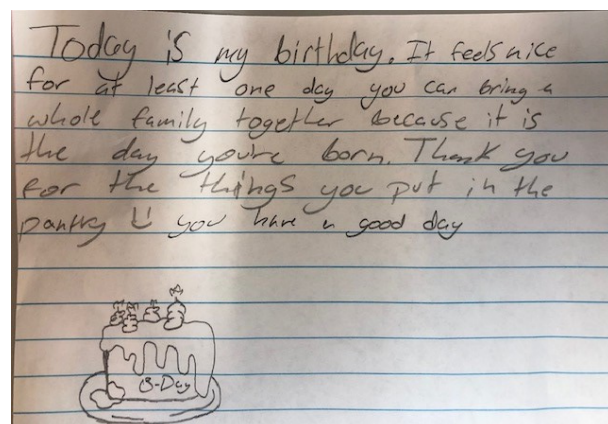 Today is my birthday. It feels nice
for at least one day you can bring a
whole family together because it is
the day you're born. Thank you
for the things you put in the
pantry you have a good day
B-Day